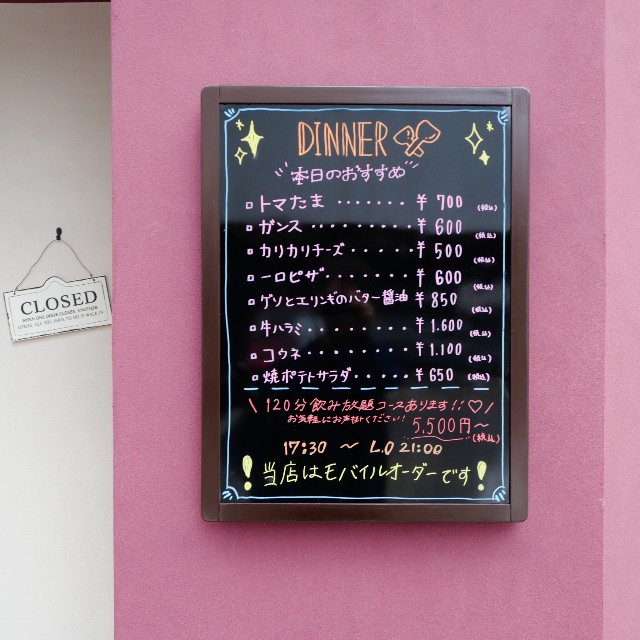 DINNER
本日のおすすめ
トマたま ・・・・・・・ ¥ 700 (税込)
ガンス・・・・・・・・・ ¥ 600 (税込)
カリカリチーズ・・・・・・ ¥ 500 (税込)
一口ピザ・・・・・・・・・ ¥ 600 (税込)
ゲソとエリンギのバター醤油 ¥ 850 (税込)
牛ハラミ・・・・・・・・ ¥ 1.600 (税込)
コウネ・・・・・・・・・ ¥ 1.100 (税込)
焼ポテトサラダ・・・・・ ¥ 650 (税込)
\ 120分飲み放題コースあります!!♡/
お気軽にお声掛けください! 5,500円〜
(税込)
17:30 〜 L.O 21:00
! 当店はモバイルオーダーです !
CLOSED
WHEN ONE DOOR CLOSES, ANOTHER
OPENS. ALL YOU HAVE TO DO IS WALK IN